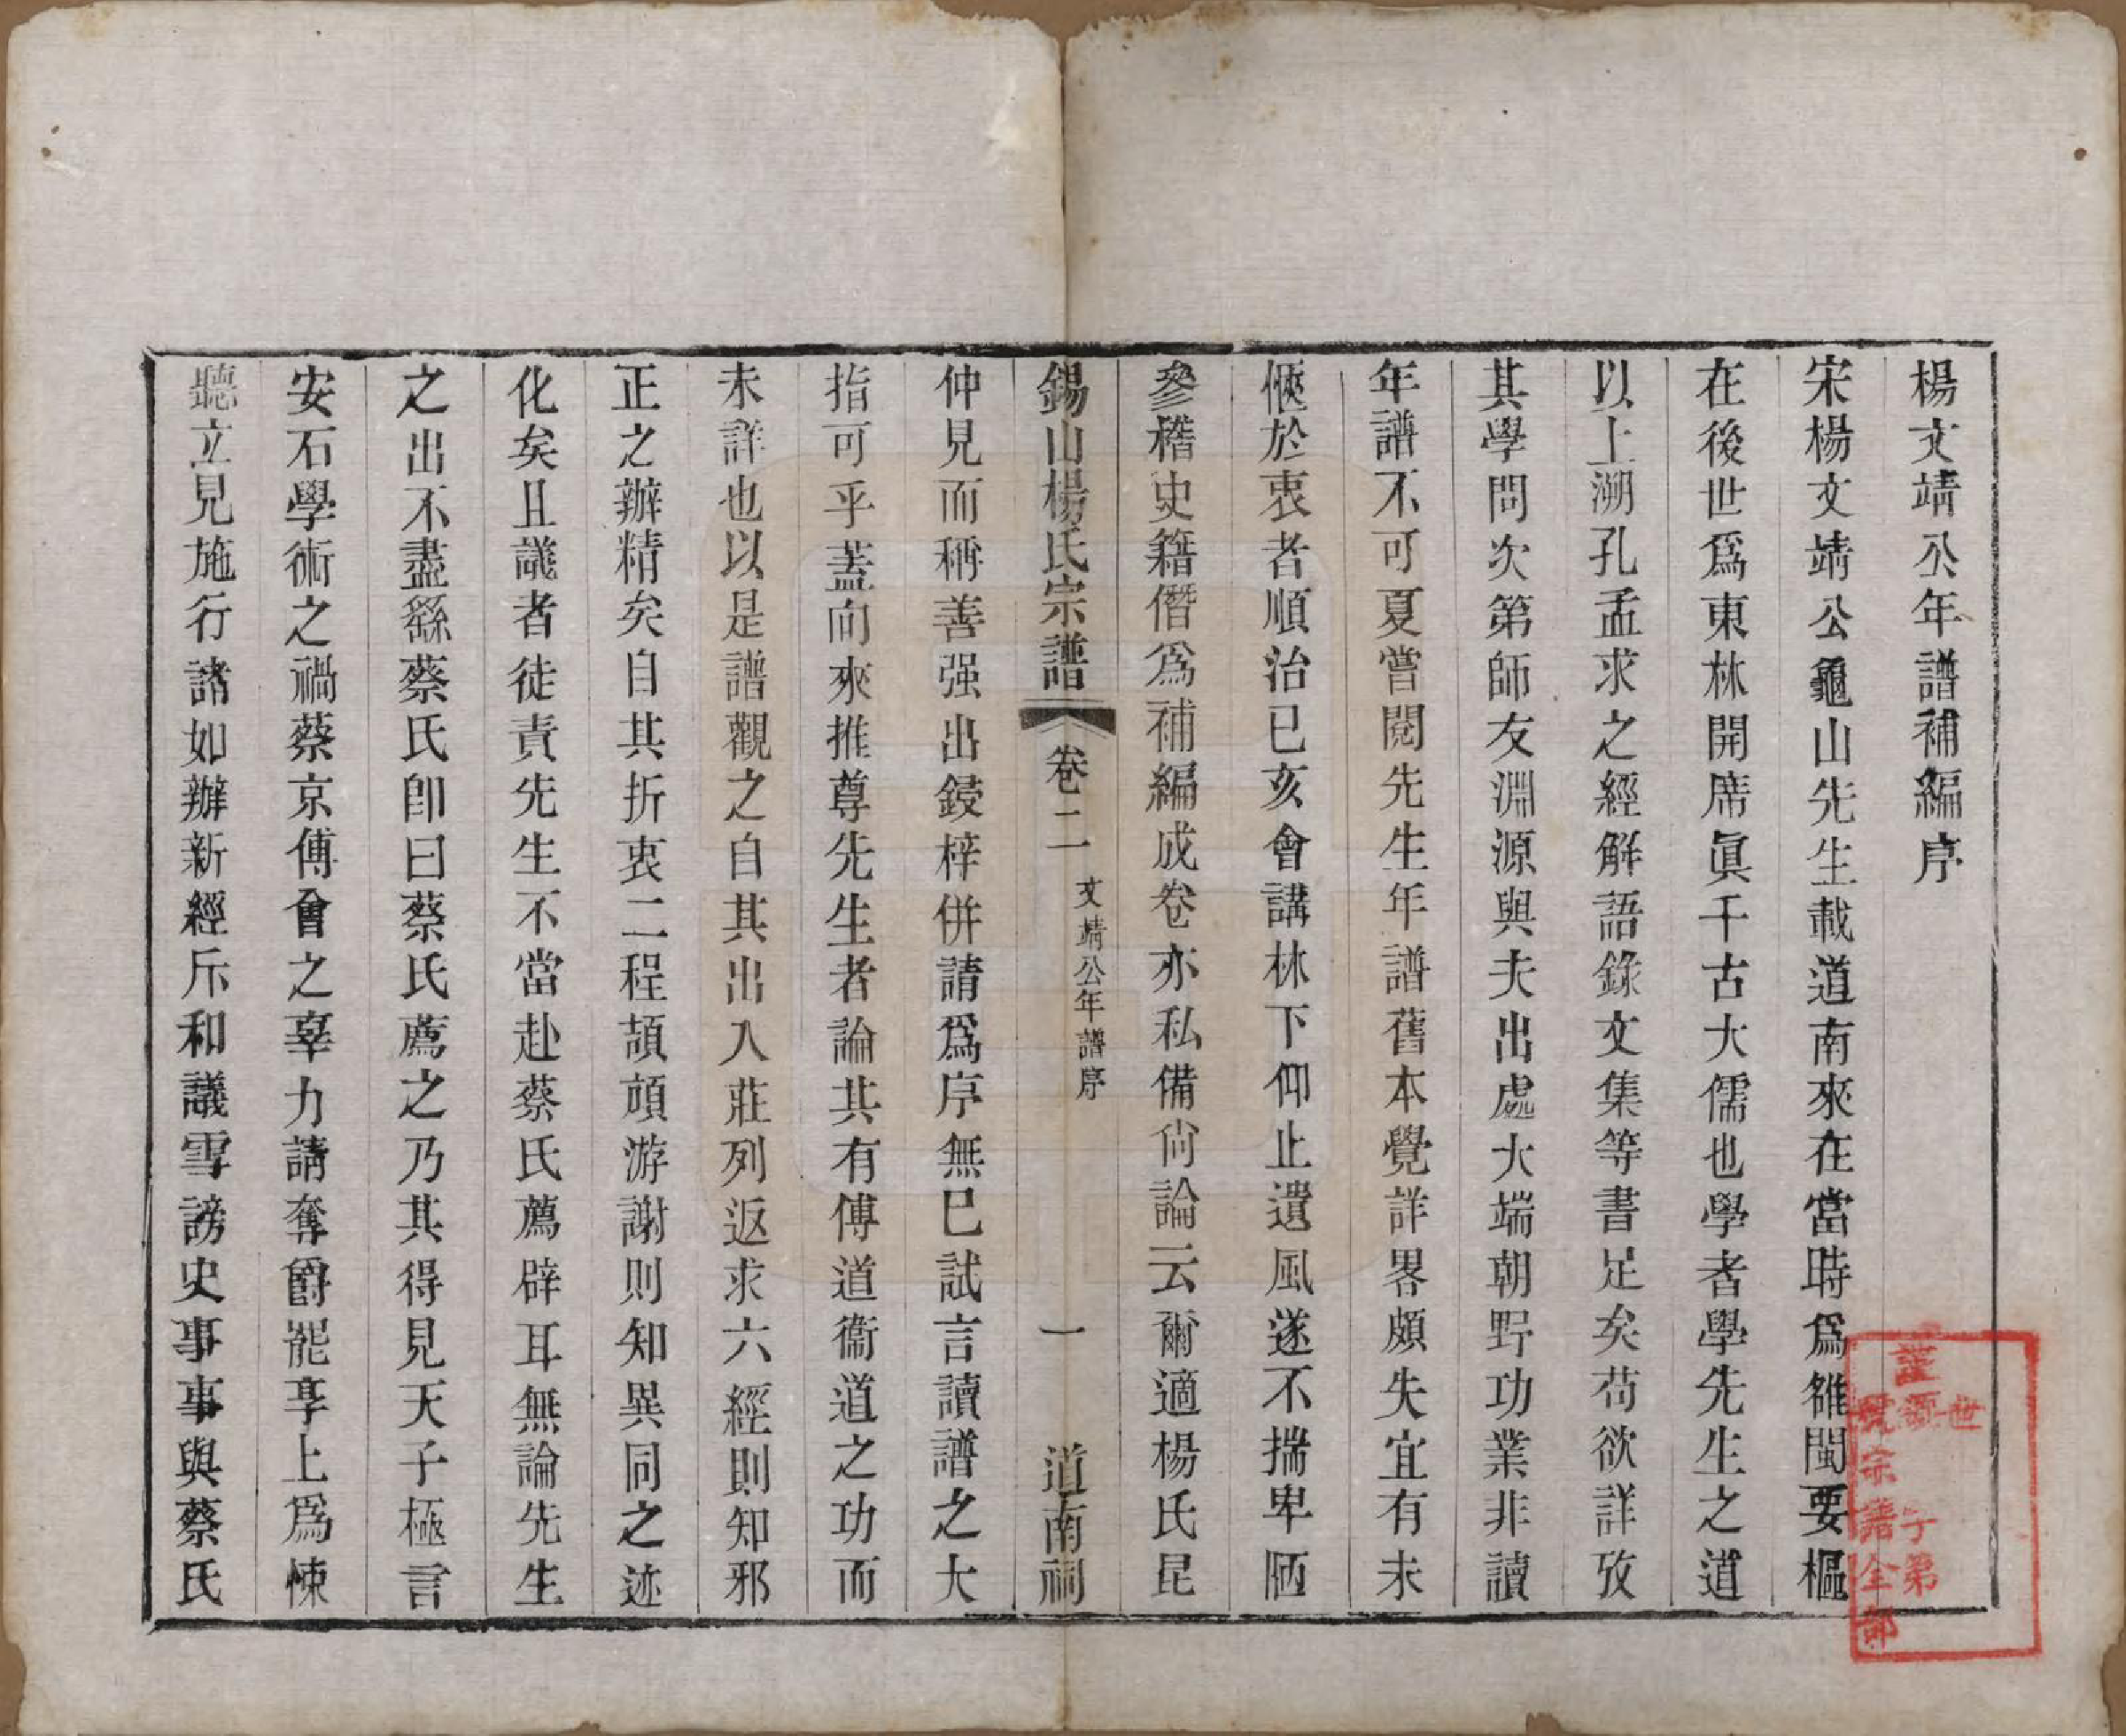 楊文靖公年譜補編序
宋楊文靖公龜山先生載道南來在當時爲雒閩要樞
在後世爲東林開席眞千古大儒也學者學先生之道
以上溯孔孟求之經解語錄文集等書足矣苟欲詳攷
其學問次第師友淵源與夫出處大端朝野功業非讀
年譜不可夏嘗閱先生年譜舊本覺詳畧頗失宜有未
愜於衷者順治已亥會講林下仰止遺風遂不揣卑陋
參稽史籍僭爲補編成卷亦私備尙論云爾適楊氏昆
錫山楊氏宗譜 卷二 文靖公年譜序 一 道南祠
仲見而稱善强出鋟梓併請爲序無已試言讀譜之大
指可乎蓋向來推尊先生者論其有傳道衞道之功而
未詳也以是譜觀之自其出入莊列返求六經則知邪
正之辦精矣自其折衷二程頡頏游謝則知異同之迹
化矣且議者徒責先生不當赴蔡氏薦辟耳無論先生
之出不盡繇蔡氏卽曰蔡氏薦之乃其得見天子極言
安石學術之禍蔡京傅會之辠力請奪爵罷享上爲悚
聽立見施行諸如辦新經斥和議雪謗史事事與蔡氏
世
子第
宗譜全部